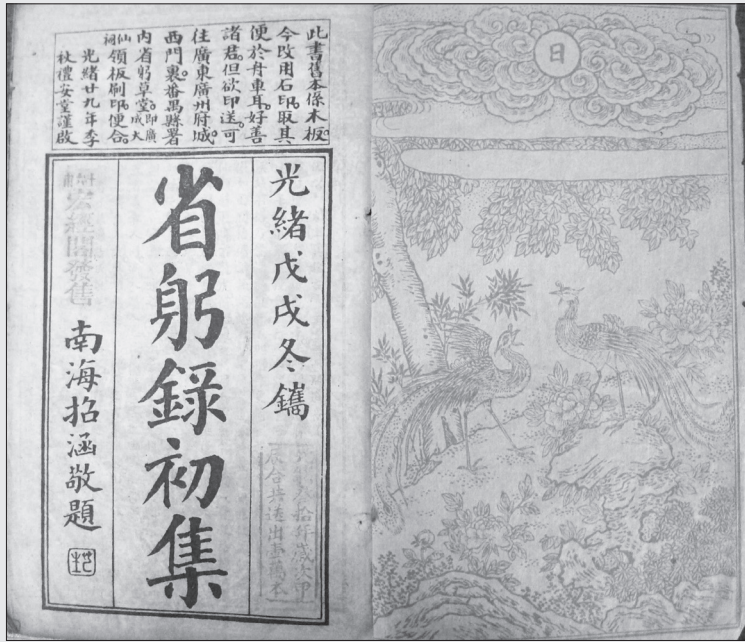 日
此書舊本係木板。
今改用石印。取其
便於舟車耳。好善
諸君。但欲印送。可
往廣東廣州府城。
西門裏。番禺縣署
内省躬草堂。即廣成大
仙祠領板刷印。便合。
光緒廿九年季
秋禮安堂謹啟
光緒戊戌冬鐫
省躬錄初集
南海招涵敬題